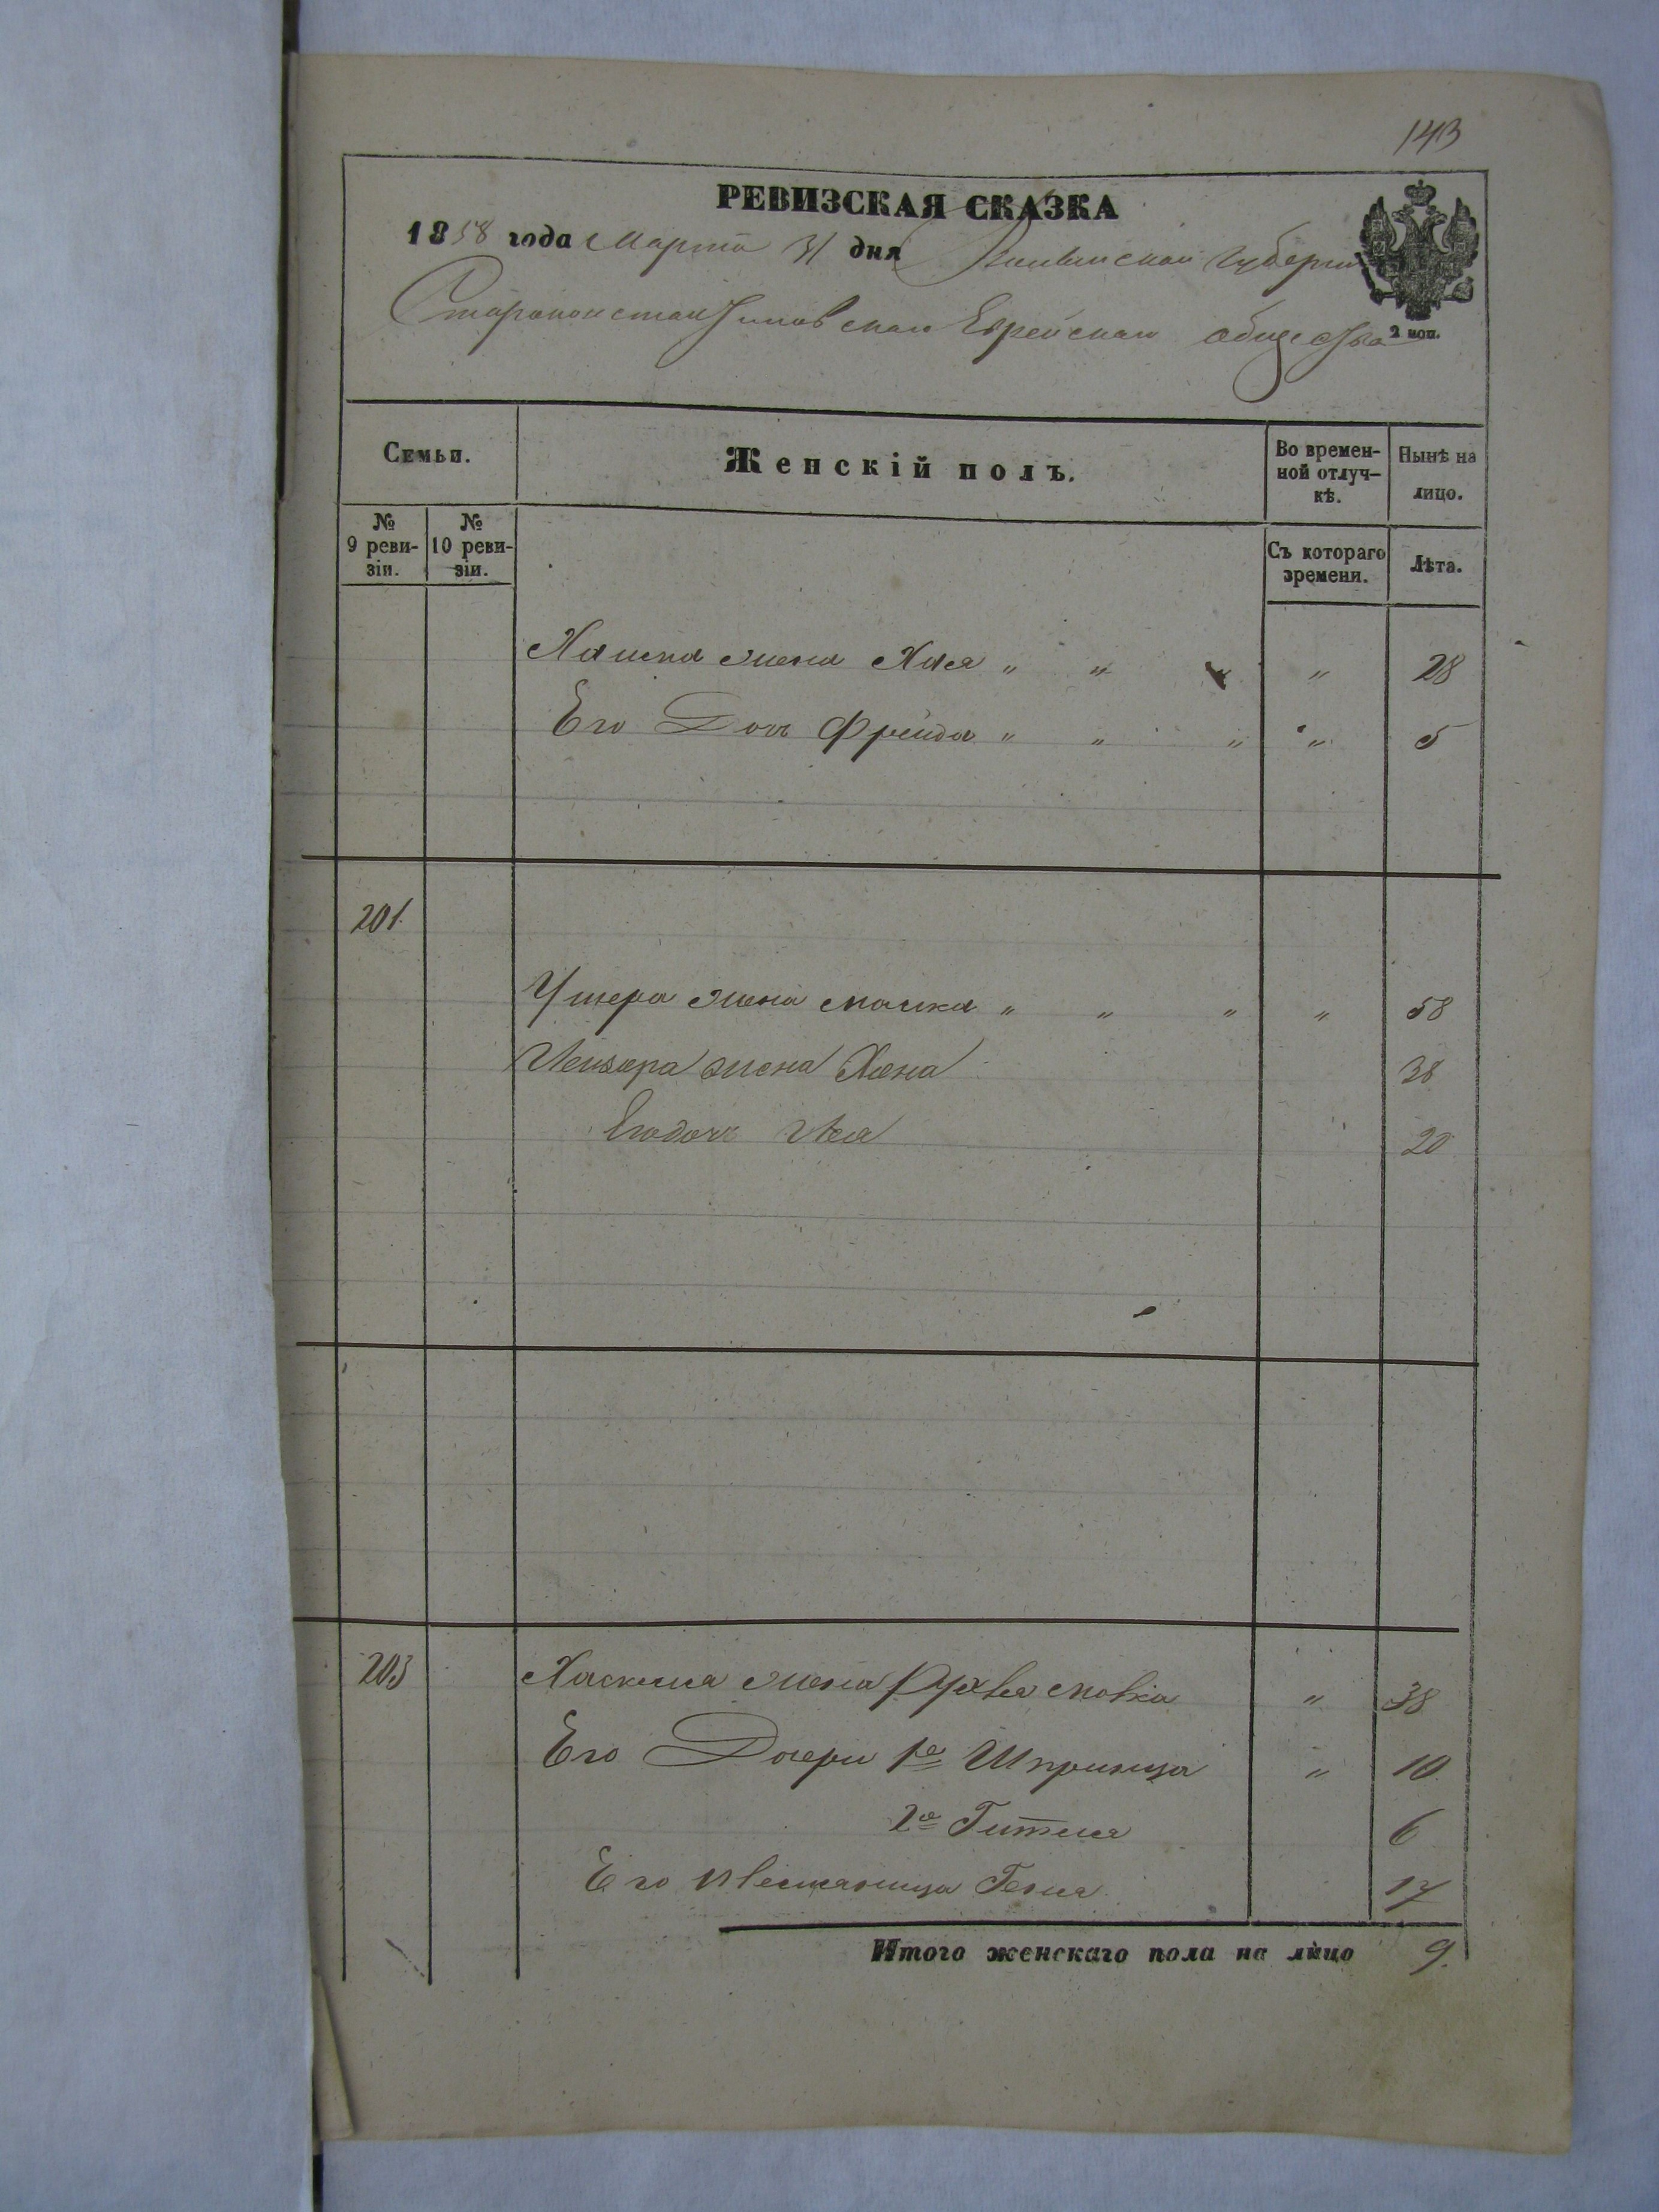 143
РЕВИЗСКАЯ СКАЗКА
1858 года Марта 31 дня Волынской Губерни
Староконстантиновскаго Еврейскаго общества
2 коп.
Семьи.
Женскій полъ.
Во времен-
ной отлуч-
кѣ.
Нынѣ на
лицо.
№
9 реви-
зіи.
№
10 реви-
зіи.
Съ котораго
времени.
Лѣта.
жена Хася " " " 28
Его Дочь Фрейда " " " " 5
201
Ушера жена Малка " " " " 58
Лейзера жена Хана 38
Его дочь Лея 20
203 Хаскеля жена Рухля " 38
Его Дочери 1я Шпринца " 10
2я Гителя 6
Его племяница Геня 17
Итого женскаго пола на лицо 9.